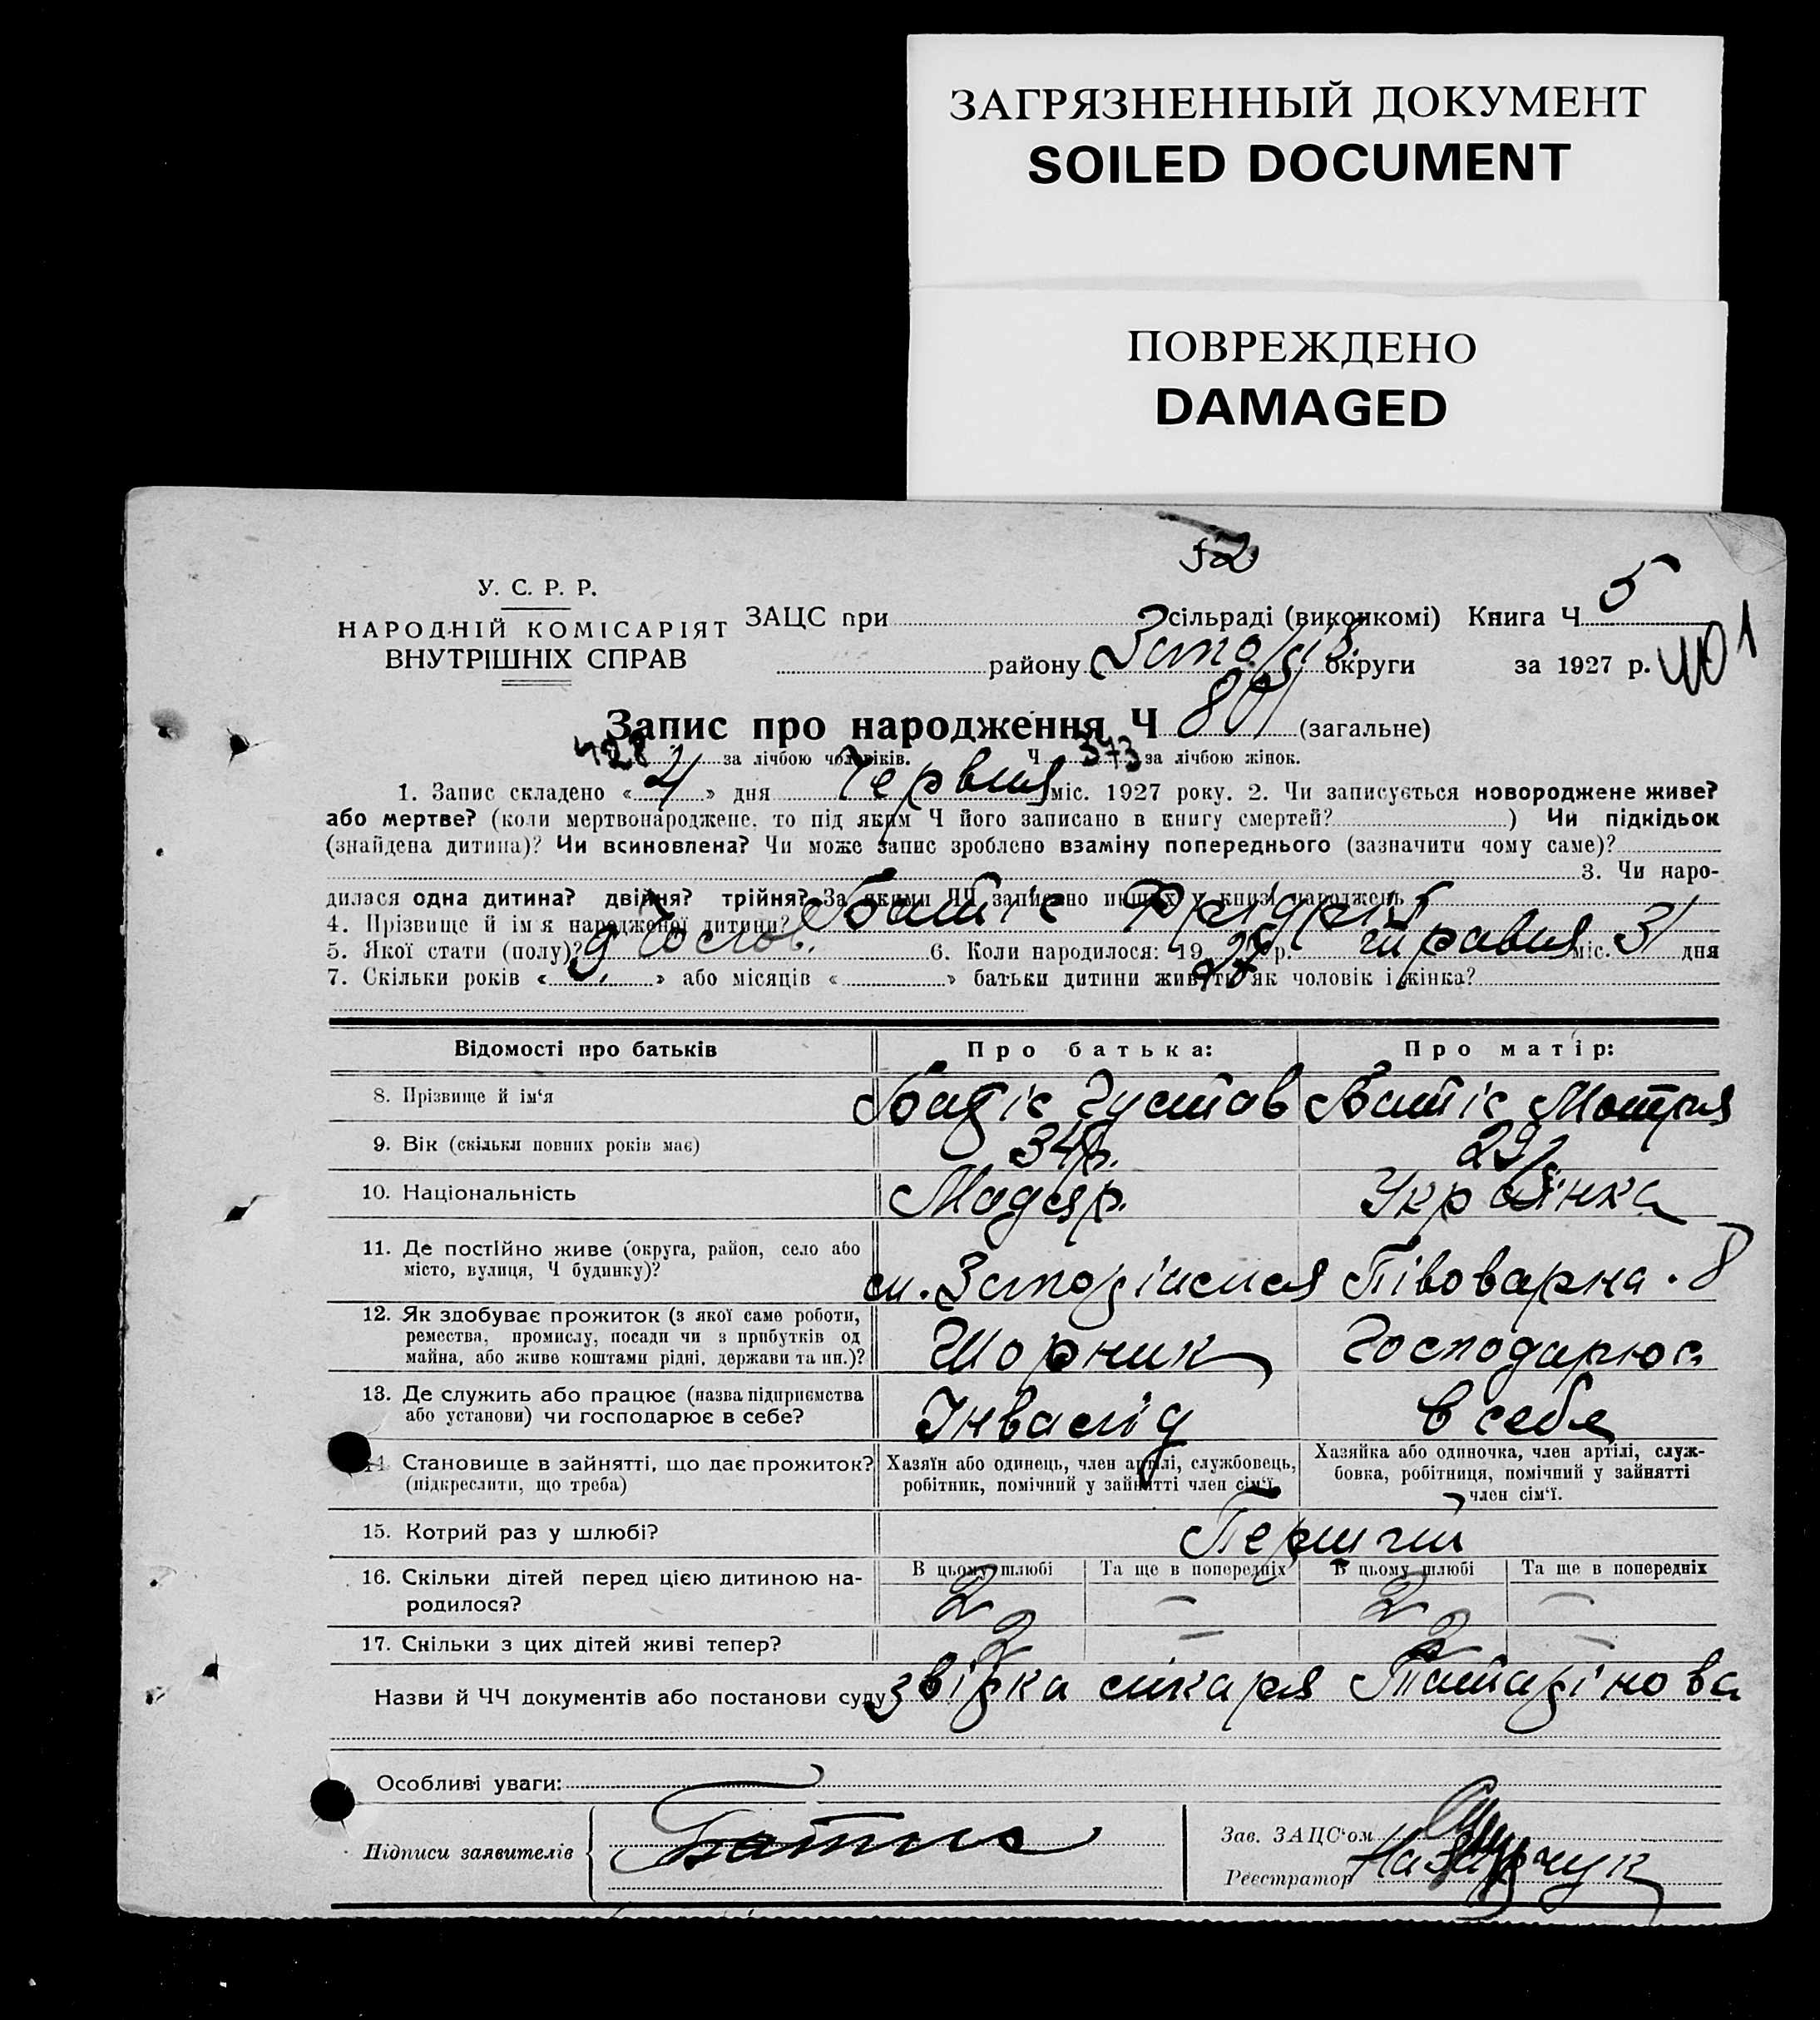 ЗАГРЯЗНЕННЫЙ ДОКУМЕНТ
SOILED DOCUMENT
ПОВРЕЖДЕНО
DAMAGED
52
У. С. Р. Р.
НАРОДНІЙ КОМІСАРІЯТ
ВНУТРІШНІХ СПРАВ
ЗАЦС при сільраді (виконкомі) Книга Ч 5
району округи за 1927 р. 401
Запис про народження Ч 801 (загальне)
428 за лічбою чоловіків. Ч 373 за лічбою жінок.
1. Запис складено «4» дня Червня міс. 1927 року. 2. Чи записується новороджене живе?
або мертве? (коли мертвонароджене, то під яким Ч його записано в книгу смертей? ) Чи підкідьок
(знайдена дитина)? Чи всиновлена? Чи може запис зроблено взаміну попереднього (зазначити чому саме)?
3. Чи наро-
дилася одна дитина? двійня? трійня? За якими ЧЧ записано инших у книзі народжень
4. Прізвище й ім'я народженої дитини? Батік Фрідріх
5. Якої стати (полу)? Чослов. 6. Коли народилося: 19 р. травня міс. 31 дня
7. Скільки років «9» або місяців « » батьки дитини живуть як чоловік і жінка?
Відомості про батьків
Про батька:
Про матір:
8. Прізвище й ім'я Батік Густав Батік Мотря
9. Вік (скільки повних років має) 34р. 29р
10. Національність Мадяр. Українка
11. Де постійно живе (округа, район, село або
місто, вулиця, Ч будинку)? м. Запоріжжя Півоварна. 8
12. Як здобуває прожиток (з якої саме роботи,
ремества, промислу, посади чи з прибутків од
майна, або живе коштами рідні, держави та ин.)? Шорник Господарює
13. Де служить або працює (назва підприємства
або установи) чи господарює в себе? Інвалід в себе
14. Становище в зайнятті, що дає прожиток?
(підкреслити, що треба)
Хазяїн або одинець, член артілі, службовець,
робітник, помічний у зайнятті член сім'ї.
Хазяйка або одиночка, член артілі, служ-
бовка, робітниця, помічний у зайнятті
член сім'ї.
15. Котрий раз у шлюбі? Перший
16. Скільки дітей перед цією дитиною на-
родилося?
В цьому шлюбі Та ще в попередніх В цьому шлюбі Та ще в попередніх
2 — 2 —
17. Скільки з цих дітей живі тепер? 2 — 2 —
Назви й ЧЧ документів або постанови суду звідка лікаря Татарінова
Особливі уваги:
Підписи заявителів Батік
Зав. ЗАЦС'ом
Реєстратор Назарчук